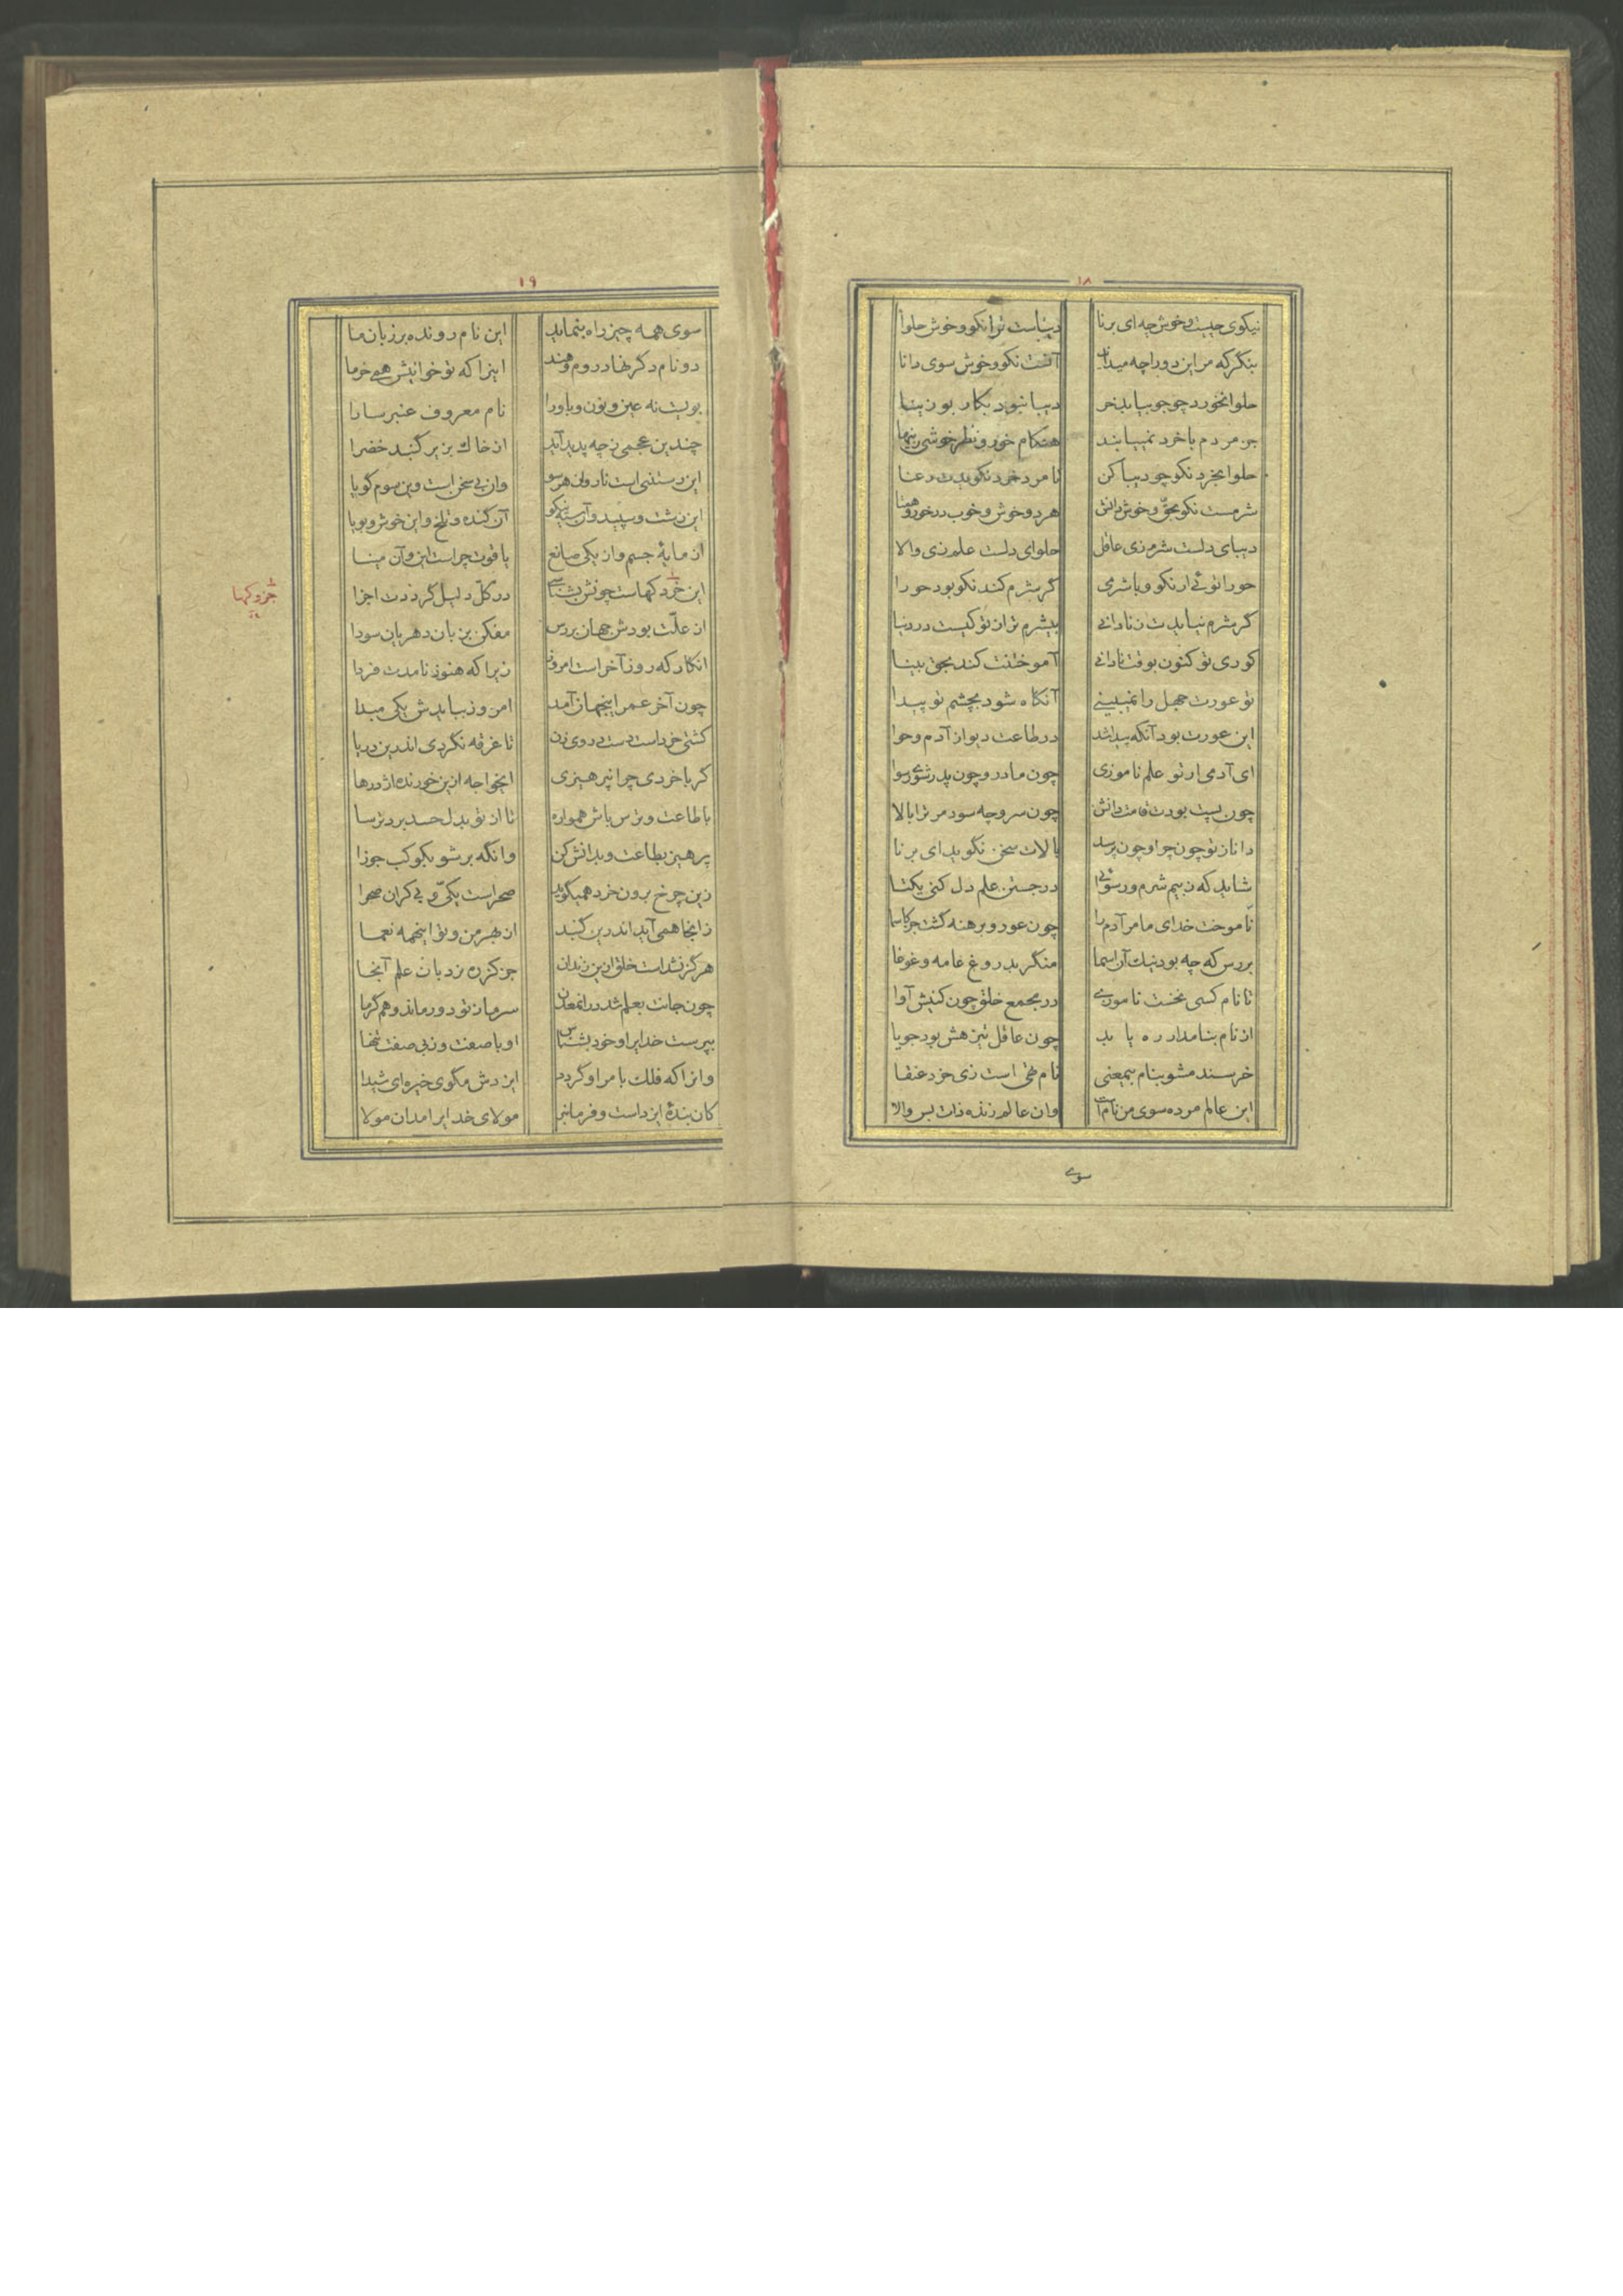 ۱۸
نیکوی چیست و خوش چه ای برنا دیباست ترا نکو و خوش حلوا
بنگر که مر این دو را چه میداند آنست نکو و خوش سوی دانا
حلوا نخورد چو جو بیابد خر دیبا نبود بکار بوزینا
جز مردم با خرد نمییابند هنگام خور و نظر خوشی زینها
حلوا بخرد نکو چو دیبا کن تا مرد خرد نکویدت رعنا
شرمست نکو بحق و خوش دانش هر دو خوش و خوب در خور و همتا
دیبای دلست شرم زی عاقل حلوای دلست علم زی والا
حورا توئی ار نکو و با شرمی گر شرم کند نکو بود حورا
گر شرم نیایدت ز نادانی بیشرم تر از تو کیست در دنیا
کوری تو کنون بوقت نادانی آموختنت کند بحق بینا
تو عورت جهل را نمیبینی آنگاه شود بچشم تو پیدا
این عورت بود آنکه پیدا شد در طاعت دیو از آدم و حوا
ای آدمی ار تو علم ناموزی چون مادر و چون پدر شوی رسوا
چون پست بودت قامت دانش چون سرو چه سود مر ترا بالا
دانا ز تو چون چرا و چون پرسد بالات سخن نگوید ای برنا
شاید که ز بیم شرم و رسوائی در جستن علم دل کنی یکتا
ناموخت خدای ما مر آدم را چون عور و برهنه گشت جز کاسما
بررس که چه بود نیک آن اسما منگر بدروغ عامه و غوغا
تا نام کسی نخست ناموزی در مجمع خلق چون کنیش آوا
از نام بنامدار ره یابد چون عاقل تیز هش بود جویا
خرسند مشو بنام بیمعنی نام تهی است زی خرد عنقا
این عالم مرده سوی من نام است وان عالم زنده ذات بس والا
سوی
۱۹
سوی همه چیز راه بنماید این نام رونده بر زبان ما
دو نام دگر نهاد روم و هند اینرا که تو خوانیش همی خرما
بویست نه عین و نون و با و را نام معروف عنبر سارا
چندین عجمی ز چه پدید آید از خاک بزیر گنبد خضرا
این رستنی است ناروان هر سو وان بی سخن است وین سوم گویا
این زشت و سپید وآن سیه نیکو آن گنده و تلخ و این خوش و بویا
از مایهٔ جسم وز یکی صانع یاقوت چراست این و آن مینا
این خرد کهاست چونش بشناسی در کل دلیل گرددت اجزا
جزو کهها
از علت بودش جهان بررس مفکن بزبان دهریان سودا
انکار که روز آخر است امروز زیرا که هنوز نامدت فردا
چون آخر عمر اینجهان آمد امروز ببایدش یکی مبدا
کشتی خرد است دست در وی زن تا غرقه نگردی اندرین دریا
گر با خردی چرا نپرهیزی ایخواجه ازین خورنده اژدرها
با طاعت و ترس باش همواره تا از تو بدل حسد برد ترسا
پرهیز بطاعت و بدانش کن وانگه بر شو بکوکب جوزا
زین چرخ برون خرد همیگوید صحراست یکی و بی کران صحرا
زانجا همی آید اندرین گنبد از بهر من و تو اینهمه نعما
هرگز نشد است خلق ازین زندان جز کز ره نردبان علم آنجا
چون جانت بعلم شد در آنمعدن سرما ز تو دور ماند و هم گرما
بپرست خدایرا و خود بشناس او با صفت و ز بی صفت تنها
وانرا که فلک بامر او گردد ایزدش مگوی خیره ای شیدا
کان بندهٔ ایزداست و فرمانبر مولای خدایرا مدان مولا